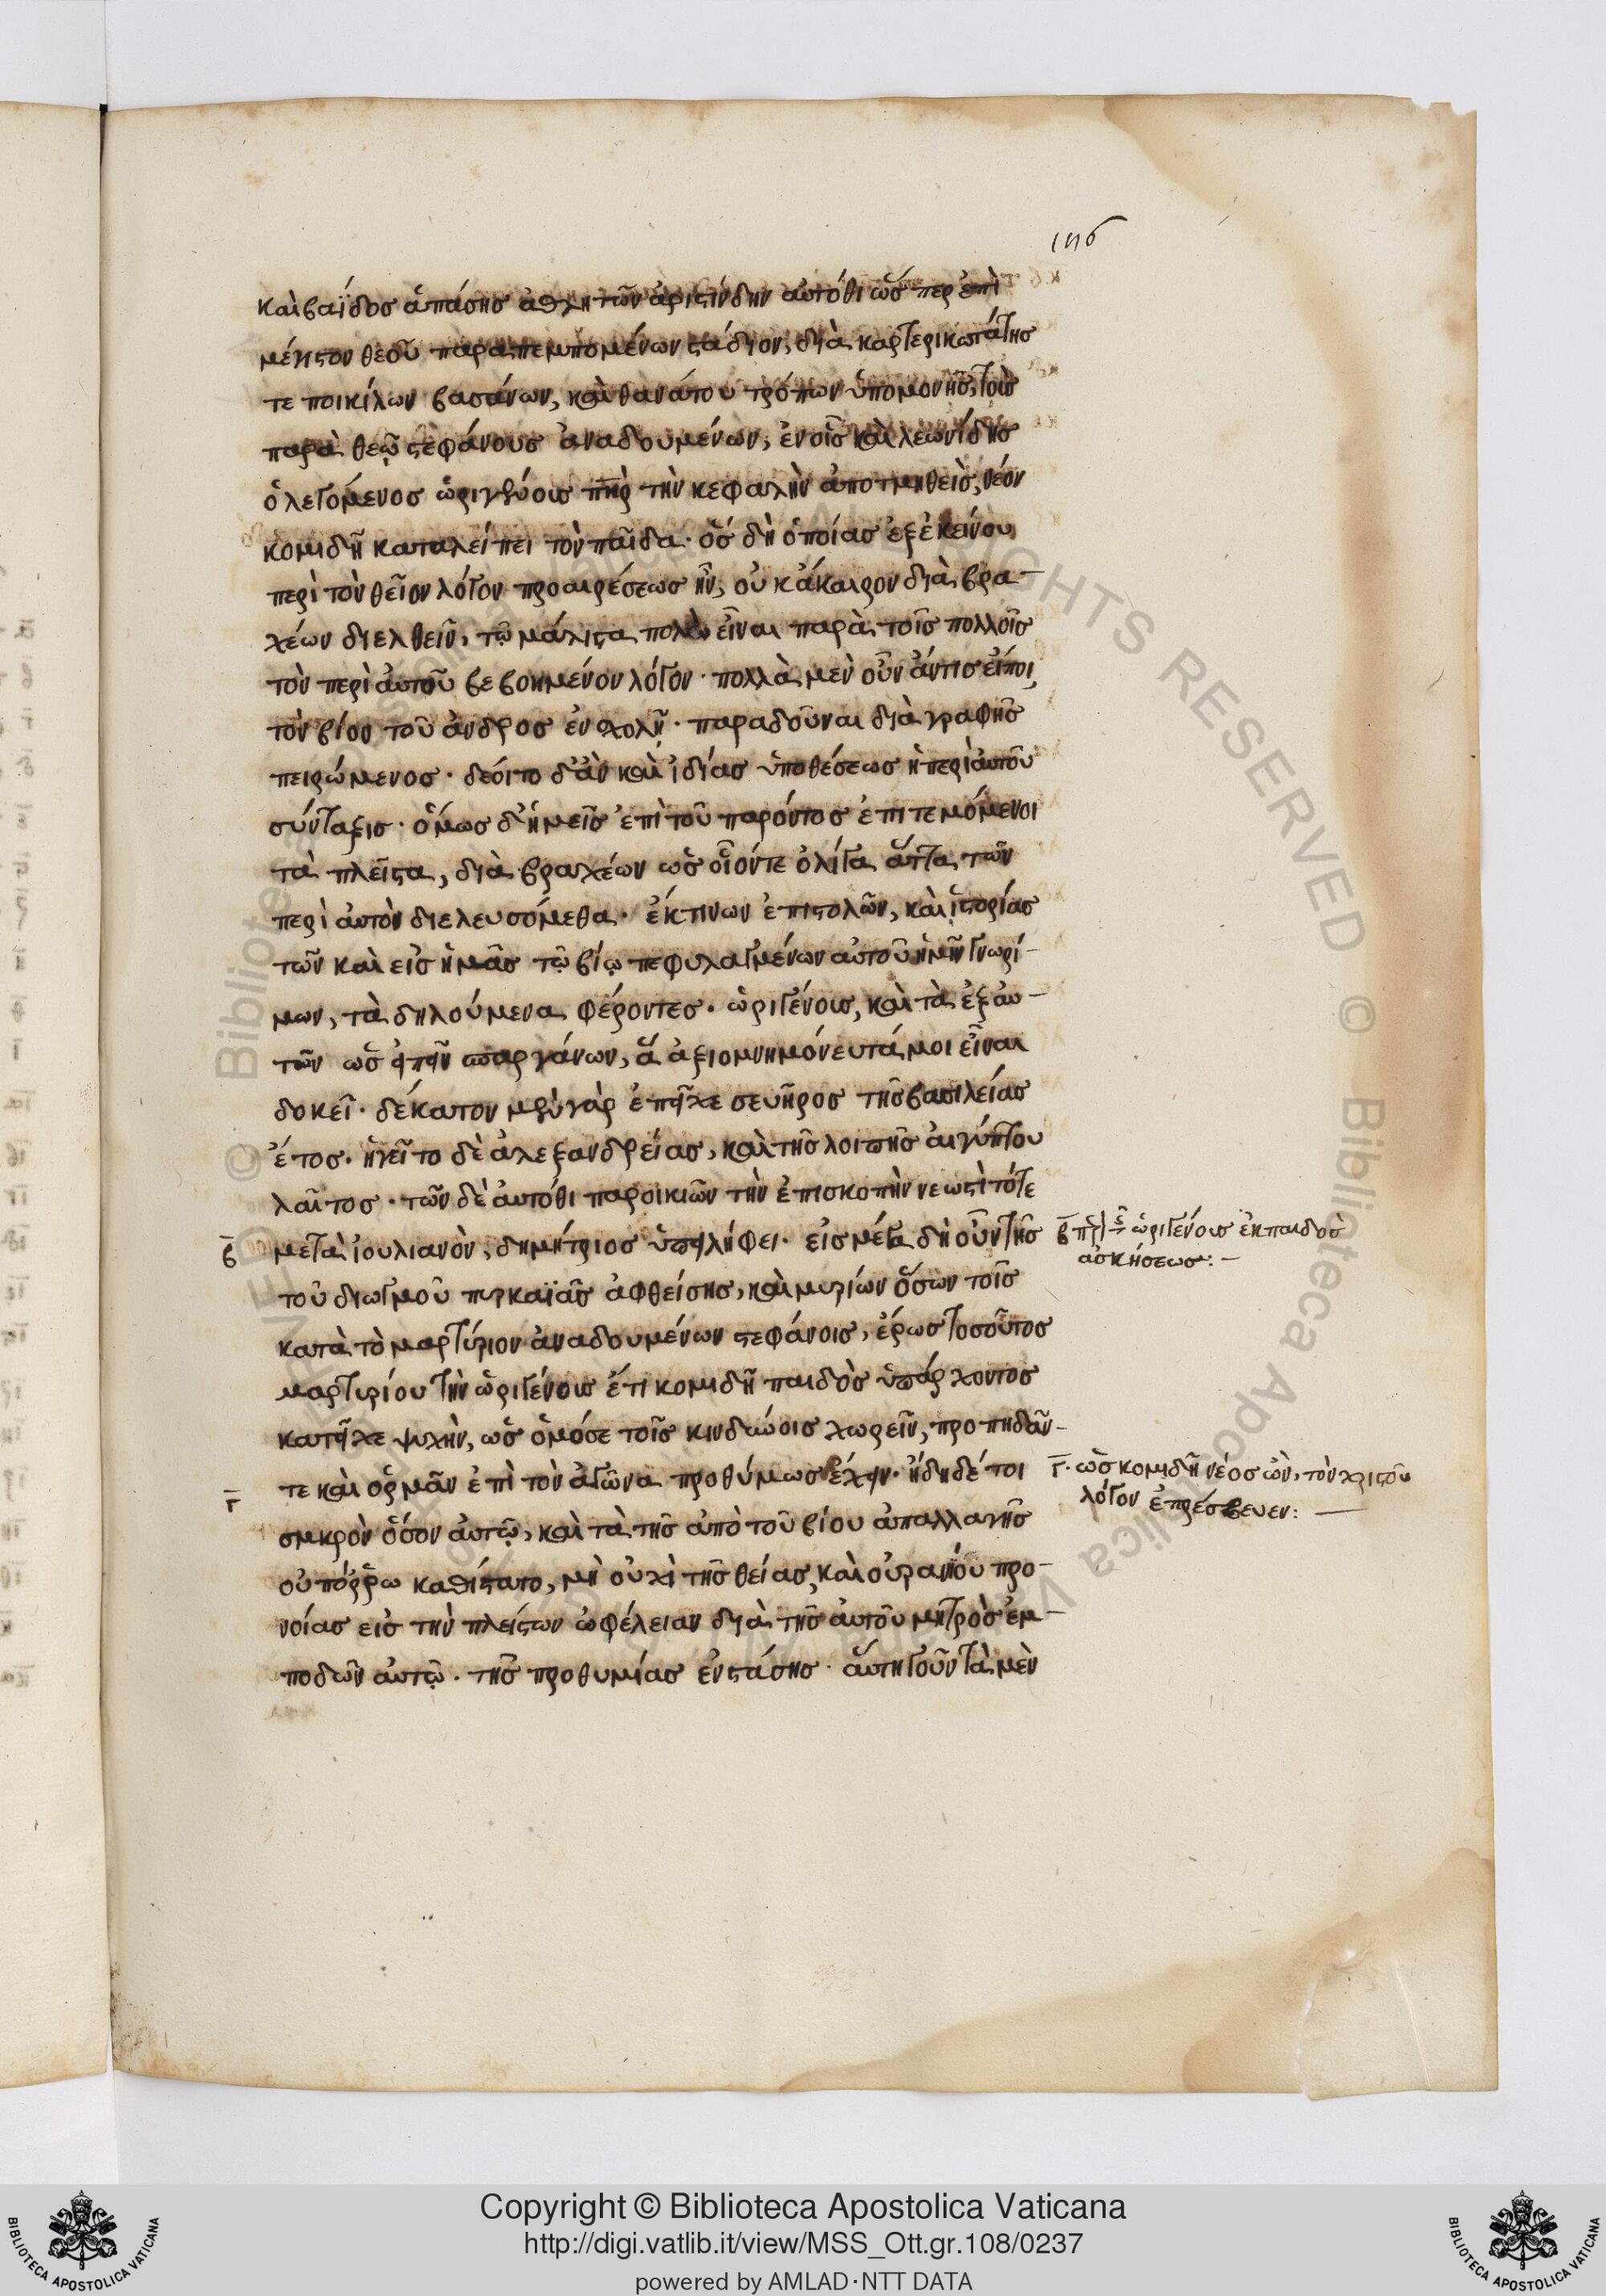 καὶ βαΐδος ἁπάσης ἀθλητῶν ἀριστίνδην αὐτόθι ὥσπερ ἐπὶ
μέγιστον θεοῦ παραπεμπομένων στάδιον, διὰ καρτερικωτάτης
τε ποικίλων βασάνων, καὶ θανάτου τρόπων ὑπομονῆς, τοὺς
παρὰ θεῷ στεφάνους ἀναδουμένων, ἐν οἷς καὶ λεωνίδης
ὁ λεγόμενος ὠριγένους πηρ τὴν κεφαλὴν ἀποτμηθεὶς, νέον
κομιδῆ καταλείπει τὸν παῖδα· ὃς δὴ ὁποίας ἐξ ἐκείνου
περὶ τὸν θεῖον λόγον προαιρέσεως ἦν, οὐκ ἄκαιρον διὰ βρα-
χέων διελθεῖν, τῷ μάλιστα πολὺν εἶναι παρὰ τοῖς πολλοῖς
τὸν περὶ αὐτοῦ βεβοημένον λόγον· πολλὰ μὲν οὖν ἄν τις εἴποι,
τὸν βίον τοῦ ἀνδρὸς ἐν σχολῇ· παραδοῦναι διὰ γραφῆς
πειρώμενος· δέοιτο δ' ἂν καὶ ἰδίας ὑποθέσεως ἡ περὶ αὐτοῦ
σύνταξις· ὅμως δ' ἡμεῖς ἐπὶ τοῦ παρόντος ἐπιτεμόμενοι
τὰ πλεῖστα, διὰ βραχέων ὡς οἷόν τε ὀλίγα ἄττα τῶν
περὶ αὐτὸν διελευσόμεθα· ἔκ τινων ἐπιστολῶν, καὶ ἱστορίας
τῶν καὶ εἰς ἡμᾶς τῷ βίῳ πεφυλαγμένων αὐτοῦ ἡμῖν γνωρί-
μων, τὰ δηλούμενα φέροντες· ὠριγένους, καὶ τὰ ἐξ αὐ-
τῶν ὡς εἰπεῖν σπαργάνων, ἃ ἀξιομνημόνευτά μοι εἶναι
δοκεῖ· δέκατον μὲν γὰρ ἐπεῖχε σευῆρος τῆς βασιλείας
ἔτος· ἡγεῖτο δὲ ἀλεξανδρείας, καὶ τῆς λοιπῆς αἰγύπτου
λαῖτος· τῶν δὲ αὐτόθι παροικιῶν τὴν ἐπισκοπὴν νεωστὶ τότε
β μετὰ ἰουλιανὸν, δημήτριος ὑπειλήφει· εἰς μέγα δὴ οὖν τῆς
τοῦ διωγμοῦ πυρκαϊᾶς ἀφθείσης, καὶ μυρίων ὅσων τοῖς
κατὰ τὸ μαρτύριον ἀναδουμένων στεφάνοις, ἔρως τοσοῦτος
μαρτυρίου τὴν ὠριγένους ἔτι κομιδῆ παιδὸς ὑπάρχοντος
κατεῖχε ψυχὴν, ὡς ὁμόσε τοῖς κινδύνοις χωρεῖν, προπηδᾶν
τε καὶ ὁρμᾶν ἐπὶ τὸν ἀγῶνα προθύμως ἔχειν· ἤδη δέ τοι
γ σμικρὸν ὅσον αὐτῷ, καὶ τὰ τῆς ἀπὸ τοῦ βίου ἀπαλλαγῆς
οὐ πόρρω καθίστατο, μὴ οὐχὶ τῆς θείας, καὶ οὐρανίου προ-
νοίας εἰς τὴν πλείστων ὠφέλειαν διὰ τῆς αὐτοῦ μητρὸς ἐμ-
ποδὼν αὐτῷ· τῆς προθυμίας ἐνστάσης· αὕτη γοῦν τὰ μὲν
β περὶ τῆς ὠριγένους ἐκ παιδὸς
ἀσκήσεως:-
γ· ὡς κομιδῆ νέος ὢν, τὸν χριστοῦ
λόγον ἐπρέσβευεν:-
© Biblioteca Apostolica Vaticana
ALL RIGHTS RESERVED
Copyright © Biblioteca Apostolica Vaticana
http://digi.vatlib.it/view/MSS_Ott.gr.108/0237
powered by AMLAD·NTT DATA
BIBLIOTECA APOSTOLICA VATICANA
BIBLIOTECA APOSTOLICA VATICANA